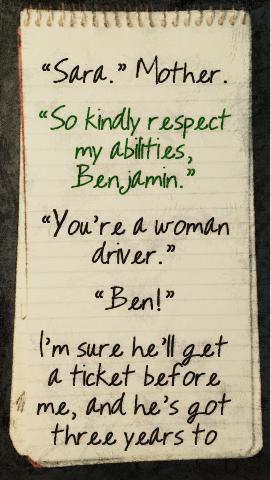 “Sara.” Mother.
“So kindly respect
my abilities,
Benjamin.”
“You’re a woman
driver.”
“Ben!”
I’m sure he’ll get
a ticket before
me, and he’s got
three years to